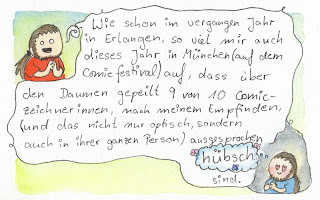 Wie schon im vergangen Jahr
in Erlangen, so viel mir auch
dieses Jahr in München (auf dem
Comicfestival) auf, dass über
den Daumen gepeilt 9 von 10 Comic-
zeichnerinnen, nach meinem Empfinden,
(und das nicht nur optisch, sondern
auch in ihrer ganzen Person) ausgesprochen
hübsch
sind.